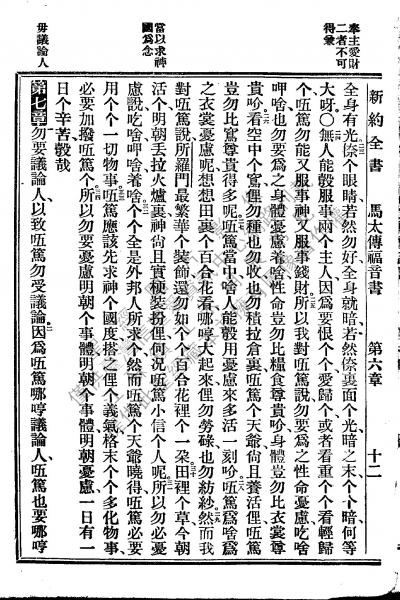 新約全書 馬太傳福音書 第六章 十二
奉主愛財
二者不可
得兼
當以求神
國爲念
毋議論人
全身有光倷个眼睛若然勿好全身就暗若然倷裏面个光暗之末个个暗何等
大呀〇無人能彀服事兩个主人因爲要恨个个愛歸个或者看重个个看輕歸
个㕶篤勿能又服事神又服事錢財所以我對㕶篤說勿要爲之性命憂慮吃啥
呷啥也勿要爲之身體憂慮着啥性命豈勿比糧食尊貴吩身體豈勿比衣裳尊
貴吩看空中个鳥俚勿種也勿收也勿積拉倉裏㕶篤个天爺尙且養活俚㕶篤
豈勿比鳥尊貴得多呢㕶篤當中啥人能彀用憂慮來多活一刻吩㕶篤爲啥爲
之衣裳憂慮呢想想田裏个百合花看哪哼大起來俚勿勞碌也勿紡紗然而我
對㕶篤說所羅門最繁華个裝飾還勿如个个百合花裡个一朶田裡个草今朝
活个明朝丟拉火爐裏神尙且實梗裝扮俚何況㕶篤小信个人呢所以勿必憂
慮說吃啥呷啥着啥个个全是外邦人所求个然而㕶篤个天爺曉得㕶篤必要
用个个一切物事㕶篤應該先求神个國度搭之俚个義氣格末个个多化物事
必要加撥㕶篤个所以勿要憂慮明朝个事體明朝个事體明朝憂慮一日有一
日个辛苦彀哉
第七章勿要議論人以致㕶篤勿受議論因爲㕶篤哪哼議論人㕶篤也要哪哼